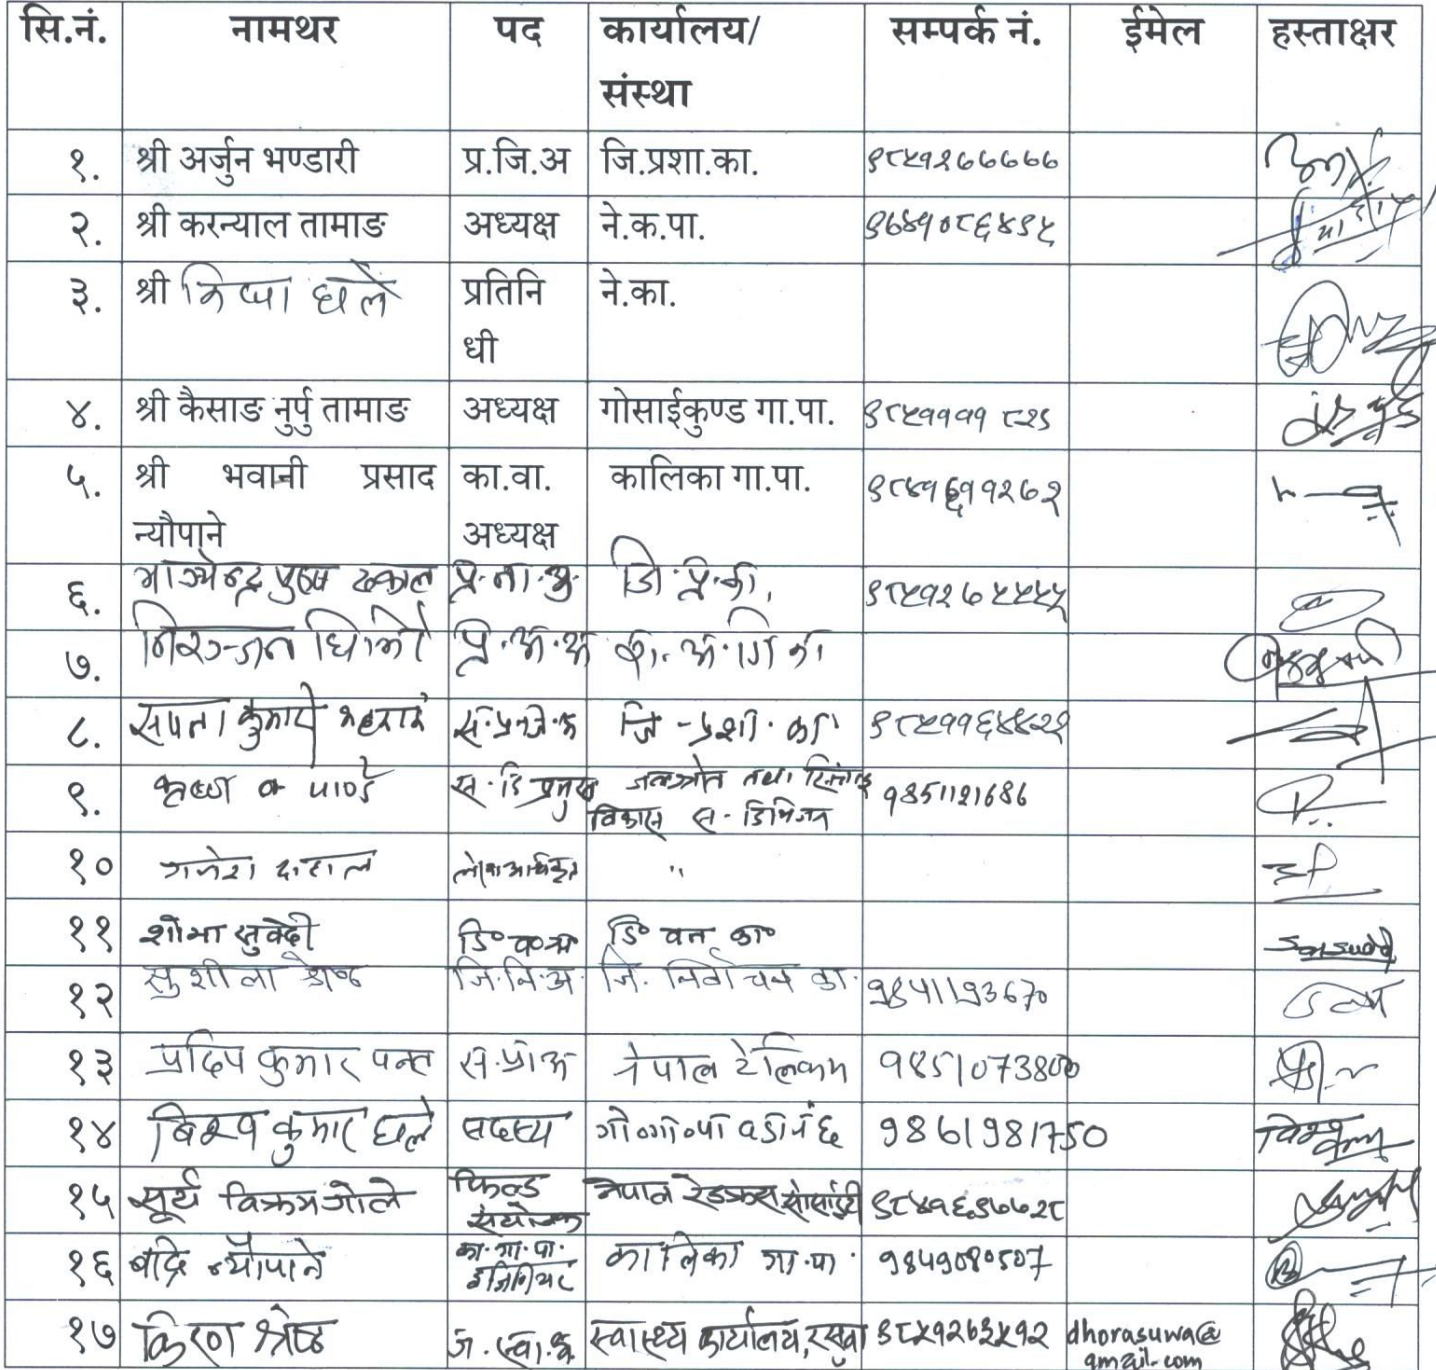 सि.नं. नामथर पद कार्यालय/ सम्पर्क नं. ईमेल हस्ताक्षर
संस्था
१. श्री अर्जुन भण्डारी प्र.जि.अ जि.प्रशा.का. ९८५१२७७७७७
२. श्री करन्याल तामाङ अध्यक्ष ने.क.पा. ९७४१०८६४९५
३. श्री घले प्रतिनि ने.का.
धी
४. श्री कैसाङ नुर्पु तामाङ अध्यक्ष गोसाईकुण्ड गा.पा. ९८५११११८२९
५. श्री भवानी प्रसाद का.वा. कालिका गा.पा. ९८४१६११२७२
न्यौपाने अध्यक्ष
६. ढकाल जि.प्र.का. ९८५१२७५५५५
७. निरन्जन घिमिरे
८. सपना कुमारी भट्टराई जि-प्रशा.का ९८५११६४४२१
९. कृष्ण ब पाण्डे स.डि प्रमुख जलश्रोत तथा सिंचाइ 9851121686
विकास स. डिभिजन
१० गनेश दाहाल लेखा अधिकृत "
११ शोभा सुवेदी डि० व०अ डि० वन का०
१२ सुशीला श्रेष्ठ जि.नि.अ जि. निर्वाचन का. 9841193670
१३ प्रदिप कुमार पन्त नेपाल टेलिकम 9851073800
१४ बिश्व कुमार घले सदस्य गो०गा०पा वडा नं ६ 9861981750
१५ सूर्य विक्रम गोले फिल्ड नेपाल रेडक्रस सोसाईटी ९८४१६९७७२८
संयोजक
१६ बद्रि न्यौपाने का.गा.पा. कालिका गा.पा. 9849080507
ईन्जिनियर
१७ किरण श्रेष्ठ ज.स्वा.अ. स्वास्थ्य कार्यालय, रसुवा ९८५१२६३५१२ dhorasuwa@
gmail.com